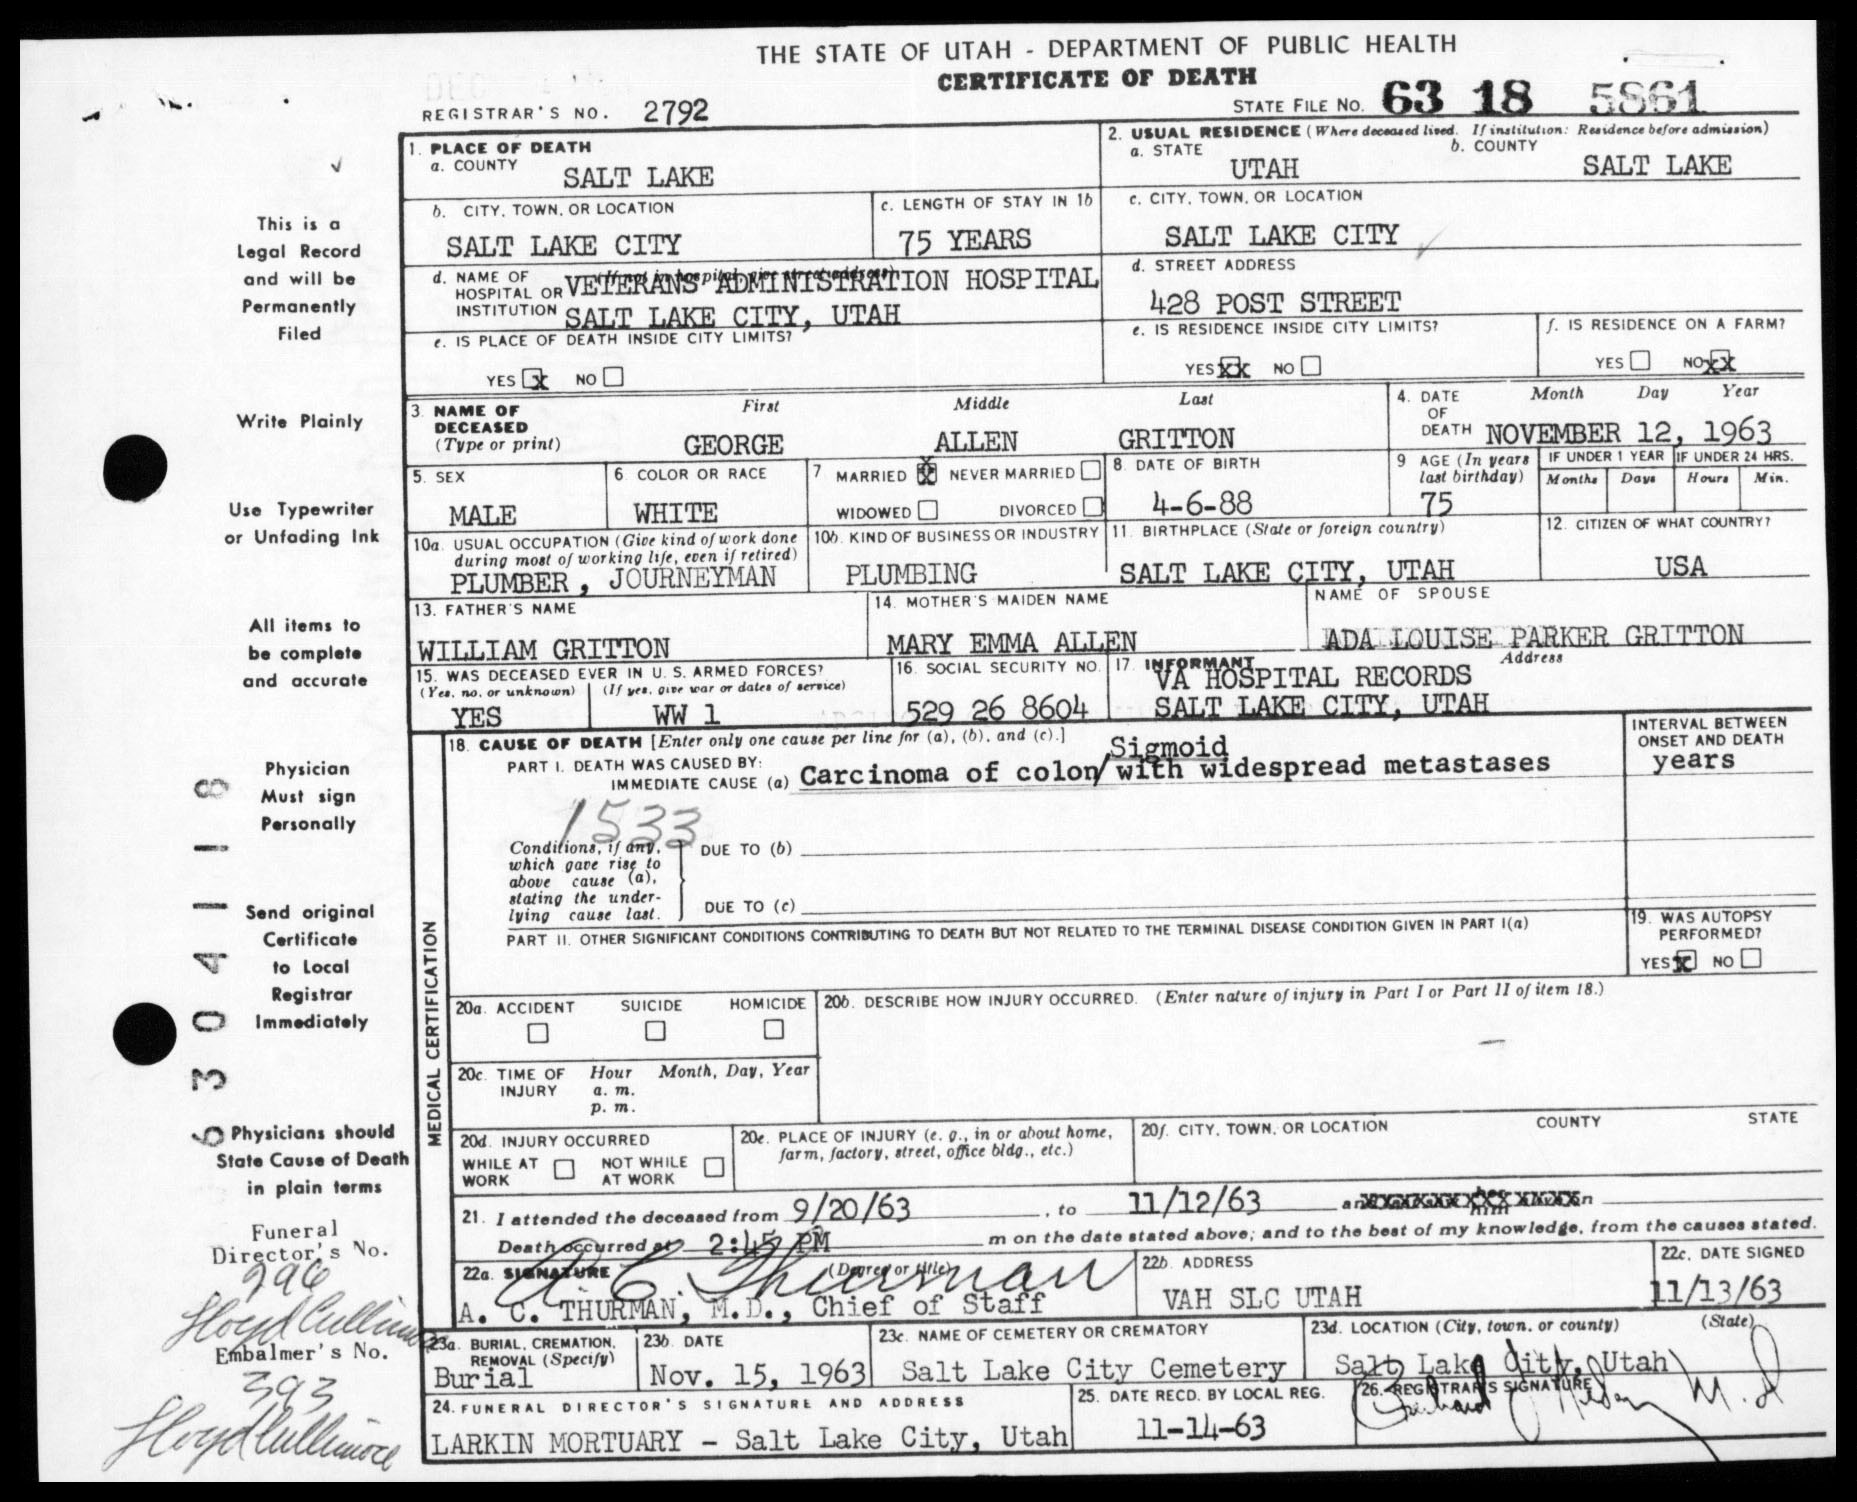 THE STATE OF UTAH - DEPARTMENT OF PUBLIC HEALTH
CERTIFICATE OF DEATH
REGISTRAR'S NO. 2792
STATE FILE NO. 63 18 5861
1. PLACE OF DEATH
a. COUNTY SALT LAKE
2. USUAL RESIDENCE (Where deceased lived. If institution: Residence before admission)
a. STATE UTAH b. COUNTY SALT LAKE
b. CITY, TOWN, OR LOCATION SALT LAKE CITY
c. LENGTH OF STAY IN 1b 75 YEARS
c. CITY, TOWN, OR LOCATION SALT LAKE CITY
d. NAME OF HOSPITAL OR INSTITUTION (If not in hospital, give street address) VETERANS ADMINISTRATION HOSPITAL
SALT LAKE CITY, UTAH
d. STREET ADDRESS 428 POST STREET
e. IS PLACE OF DEATH INSIDE CITY LIMITS? YES X NO
e. IS RESIDENCE INSIDE CITY LIMITS? YES XX NO
f. IS RESIDENCE ON A FARM? YES NO XX
3. NAME OF DECEASED (Type or print) First Middle Last
GEORGE ALLEN GRITTON
4. DATE OF DEATH Month Day Year
NOVEMBER 12, 1963
5. SEX MALE
6. COLOR OR RACE WHITE
7. MARRIED X NEVER MARRIED
WIDOWED DIVORCED
8. DATE OF BIRTH 4-6-88
9. AGE (In years last birthday) 75
IF UNDER 1 YEAR Months Days
IF UNDER 24 HRS. Hours Min.
10a. USUAL OCCUPATION (Give kind of work done during most of working life, even if retired)
PLUMBER, JOURNEYMAN
10b. KIND OF BUSINESS OR INDUSTRY PLUMBING
11. BIRTHPLACE (State or foreign country) SALT LAKE CITY, UTAH
12. CITIZEN OF WHAT COUNTRY? USA
13. FATHER'S NAME WILLIAM GRITTON
14. MOTHER'S MAIDEN NAME MARY EMMA ALLEN
NAME OF SPOUSE ADA LOUISE PARKER GRITTON
15. WAS DECEASED EVER IN U. S. ARMED FORCES?
(Yes, no, or unknown) (If yes, give war or dates of service)
YES WW 1
16. SOCIAL SECURITY NO. 529 26 8604
17. INFORMANT Address
VA HOSPITAL RECORDS
SALT LAKE CITY, UTAH
MEDICAL CERTIFICATION
18. CAUSE OF DEATH [Enter only one cause per line for (a), (b), and (c).]
PART I. DEATH WAS CAUSED BY:
IMMEDIATE CAUSE (a) Carcinoma of colon/ Sigmoid with widespread metastases
INTERVAL BETWEEN ONSET AND DEATH
years
1533
Conditions, if any, which gave rise to above cause (a), stating the underlying cause last.
DUE TO (b)
DUE TO (c)
PART II. OTHER SIGNIFICANT CONDITIONS CONTRIBUTING TO DEATH BUT NOT RELATED TO THE TERMINAL DISEASE CONDITION GIVEN IN PART I(a)
19. WAS AUTOPSY PERFORMED?
YES X NO
20a. ACCIDENT SUICIDE HOMICIDE
20b. DESCRIBE HOW INJURY OCCURRED. (Enter nature of injury in Part I or Part II of item 18.)
20c. TIME OF INJURY Hour a. m. p. m. Month, Day, Year
20d. INJURY OCCURRED
WHILE AT WORK NOT WHILE AT WORK
20e. PLACE OF INJURY (e. g., in or about home, farm, factory, street, office bldg., etc.)
20f. CITY, TOWN, OR LOCATION COUNTY STATE
21. I attended the deceased from 9/20/63, to 11/12/63
Death occurred at 2:45 PM m on the date stated above; and to the best of my knowledge, from the causes stated.
22a. SIGNATURE (Degree or title)
A C Thurman
A. C. THURMAN, M.D., Chief of Staff
22b. ADDRESS VAH SLC UTAH
22c. DATE SIGNED 11/13/63
23a. BURIAL, CREMATION, REMOVAL (Specify) Burial
23b. DATE Nov. 15, 1963
23c. NAME OF CEMETERY OR CREMATORY Salt Lake City Cemetery
23d. LOCATION (City, town, or county) (State)
Salt Lake City, Utah
24. FUNERAL DIRECTOR'S SIGNATURE AND ADDRESS
LARKIN MORTUARY - Salt Lake City, Utah
25. DATE RECD. BY LOCAL REG. 11-14-63
26. REGISTRAR'S SIGNATURE
This is a
Legal Record
and will be
Permanently
Filed
Write Plainly
Use Typewriter
or Unfading Ink
All items to
be complete
and accurate
Physician
Must sign
Personally
Send original
Certificate
to Local
Registrar
Immediately
Physicians should
State Cause of Death
in plain terms
Funeral
Director's No.
296
Lloyd Cullimore
Embalmer's No.
393
Lloyd Cullimore